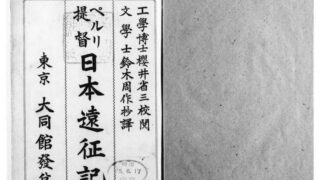 工學博士櫻井省三校閲
文學士鈴木周作抄譯
ペルリ提督
日本遠征記
東京 大同館發兌